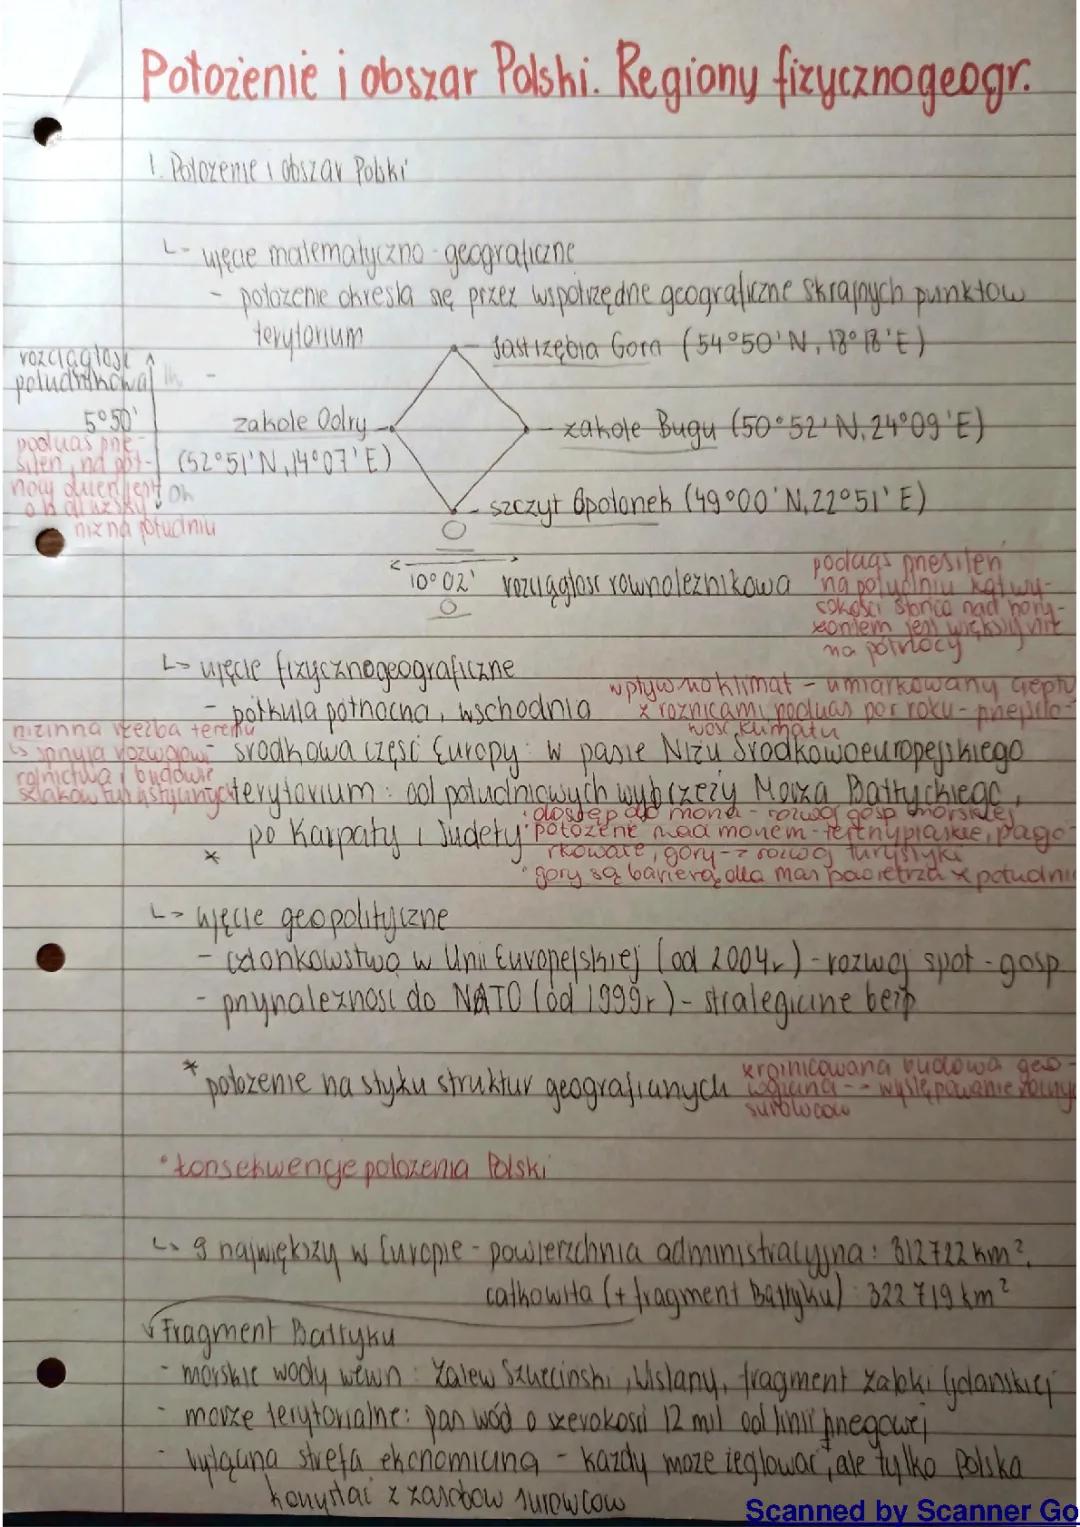 Położenie i obszar Polski. Regiony fizycznogeogr.
1. Położenie i obszar Polski
↳ ujęcie matematyczno-geograficzne
- położenie określa się przez współrzędne geograficzne skrajnych punktów
terytorium
Jastrzębia Góra (54°50'N, 18°18'E)
rozciągłość
południkowa
1h
5°50'
zakole Odry
(52°51'N, 14°07'E)
zakole Bugu (50°52'N, 24°09'E)
podczas prze-
sileń, na pół-
nocy dzień jest
o 1h dłuższy
niż na południu
0h
szczyt Opołonek (49°00'N, 22°51'E)
10°02' rozciągłość równoleżnikowa
podczas przesileń
na południu kąt wy-
sokości słońca nad hory-
zontem jest większy niż
na północy
↳ ujęcie fizycznogeograficzne
- półkula północna, wschodnia
wpływ na klimat - umiarkowany ciepły
z różnicami podczas pór roku - przejścio-
wość klimatu
nizinna rzeźba terenu
↳ sprzyja rozwojowi
rolnictwa i budowie
szlaków turystycznych
- środkowa część Europy: w pasie Niżu Środkowoeuropejskiego
terytorium: od południowych wybrzeży Morza Bałtyckiego,
po Karpaty i Sudety
• dostęp do morza - rozwój gosp. morskiej
• położenie nad morzem - tereny płaskie, pagó-
rkowate, góry -> rozwój turystyki
• góry są barierą dla mas powietrza z południa
*
↳ ujęcie geopolityczne
- członkowstwo w Unii Europejskiej (od 2004r) - rozwój społ-gosp.
- przynależność do NATO (od 1999r) - strategiczne bezp
* położenie na styku struktur geograficznych
zróżnicowana budowa geo-
logiczna -> występowanie różnych
surowców
• konsekwencje położenia Polski
↳ 9 największy w Europie - powierzchnia administracyjna: 312722 km²,
całkowita (+ fragment Bałtyku) 322 719 km²
Fragment Bałtyku
- morskie wody wewn: Zalew Szczeciński, Wiślany, fragment Zatoki Gdańskiej
- morze terytorialne: pas wód o szerokości 12 mil od linii brzegowej
- wyłączna strefa ekonomiczna - każdy może żeglować, ale tylko Polska
korzystać z zasobów surowców
Scanned by Scanner Go